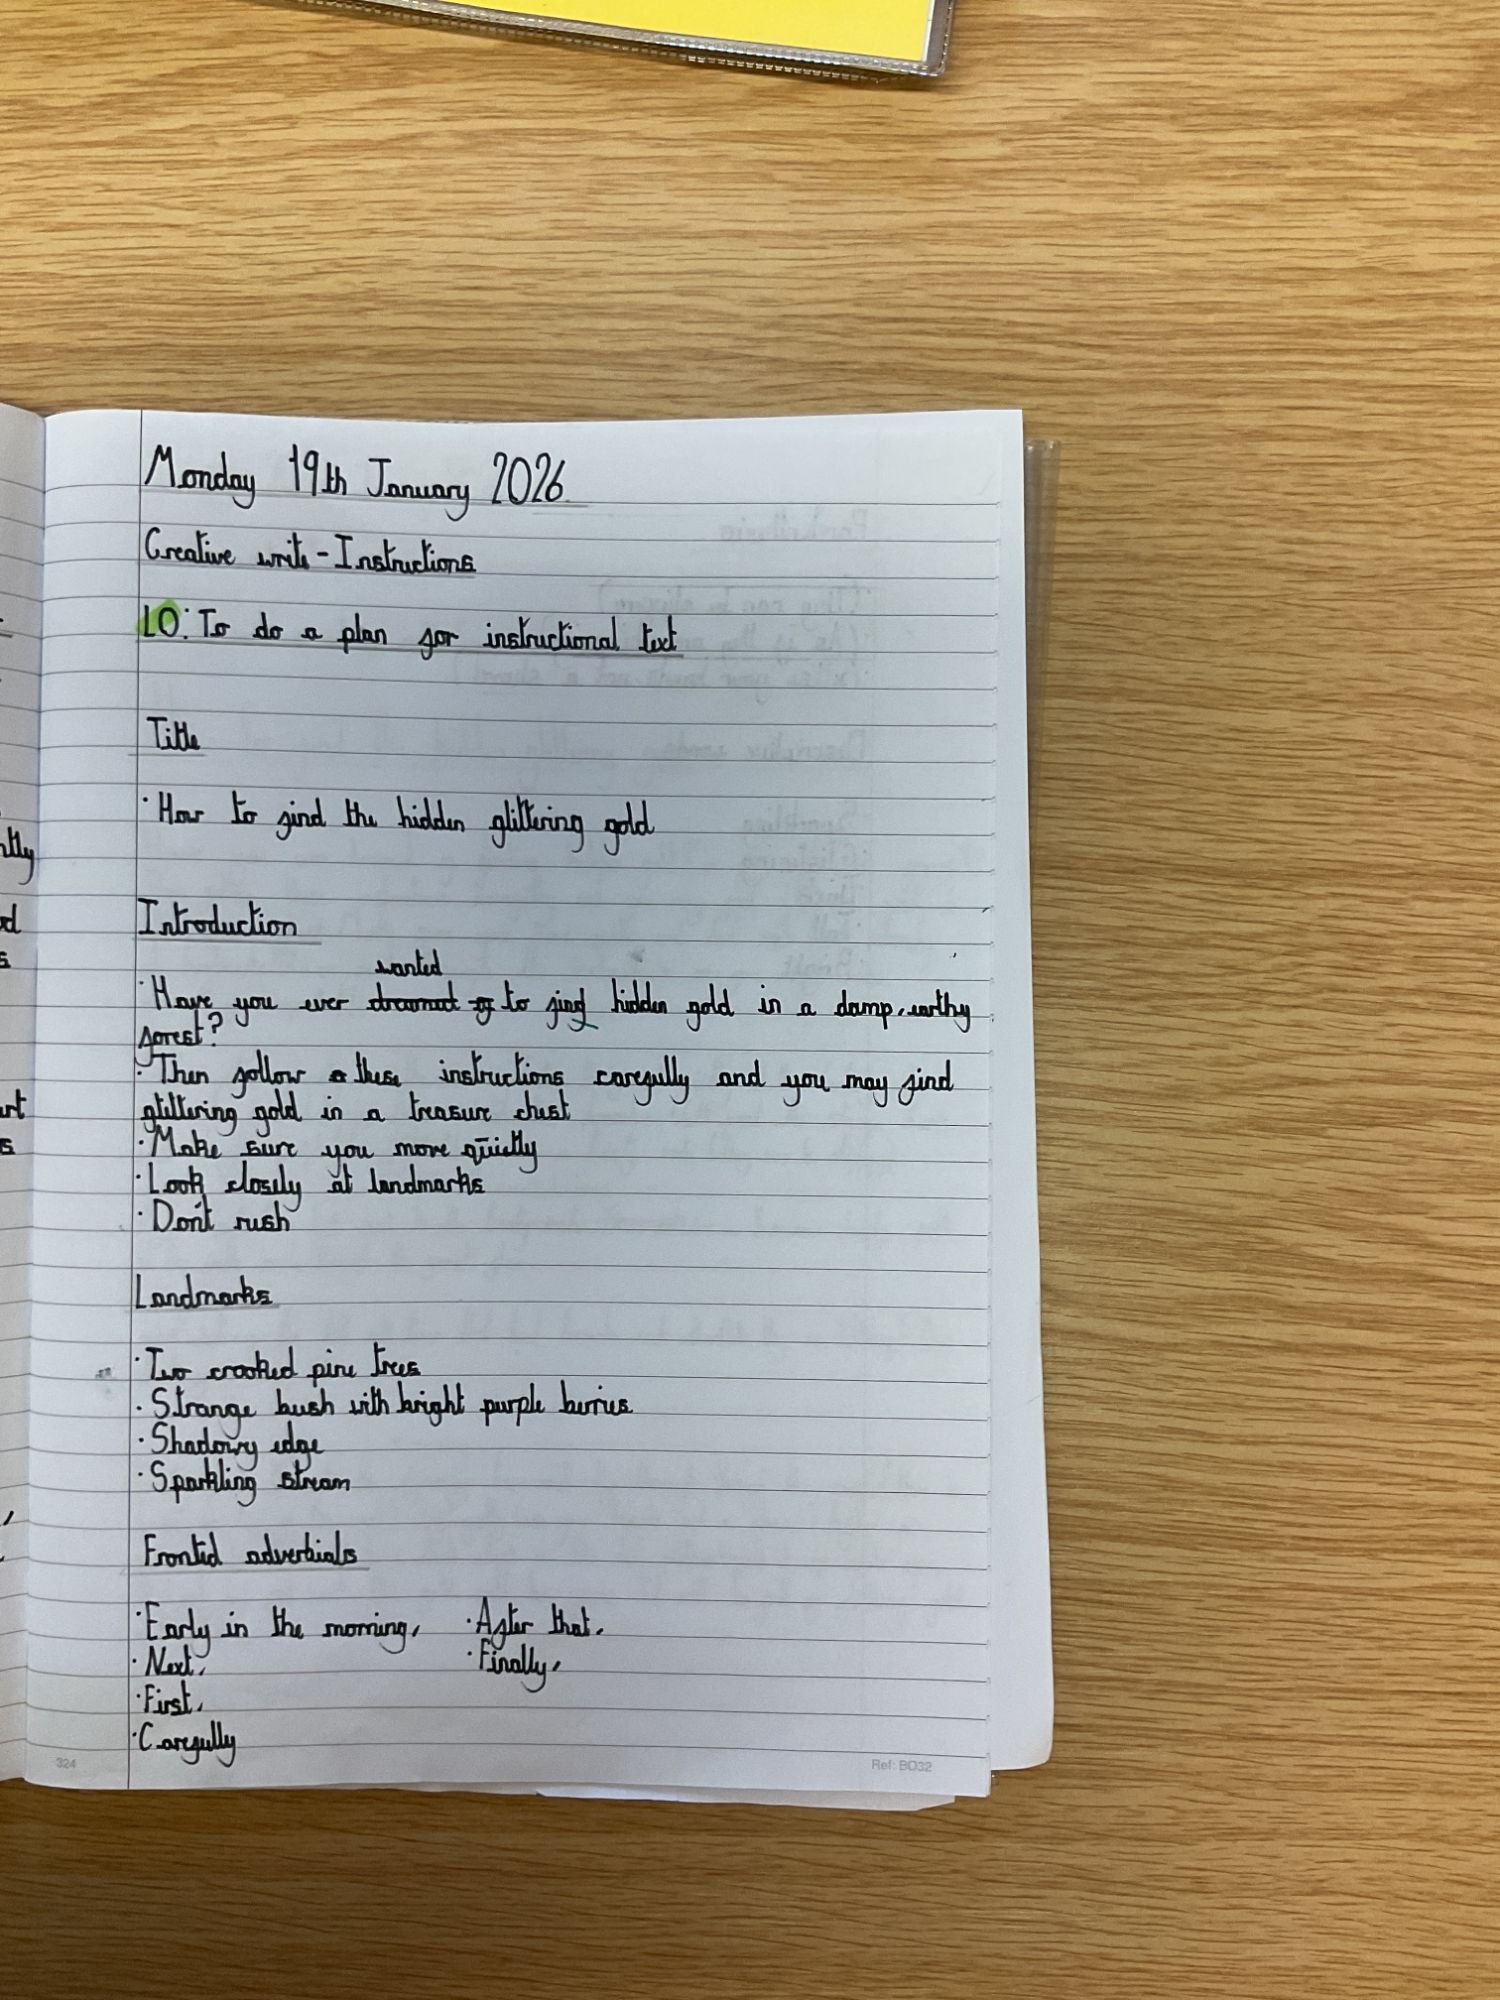 Monday 19th January 2026
Creative write - Instructions
LO: To do a plan for instructional text
Title
· How to find the hidden glittering gold
Introduction
wanted
· Have you ever dreamed of to find hidden gold in a damp, earthy
forest?
· Then follow these instructions carefully and you may find
glittering gold in a treasure chest
· Make sure you move quietly
· Look closely at landmarks
· Don't rush
Landmarks
· Two crooked pine trees
· Strange bush with bright purple berries
· Shadowy edge
· Sparkling stream
Fronted adverbials
· Early in the morning, · After that,
· Next, · Finally,
· First,
· Carefully
324 Ref: BO32